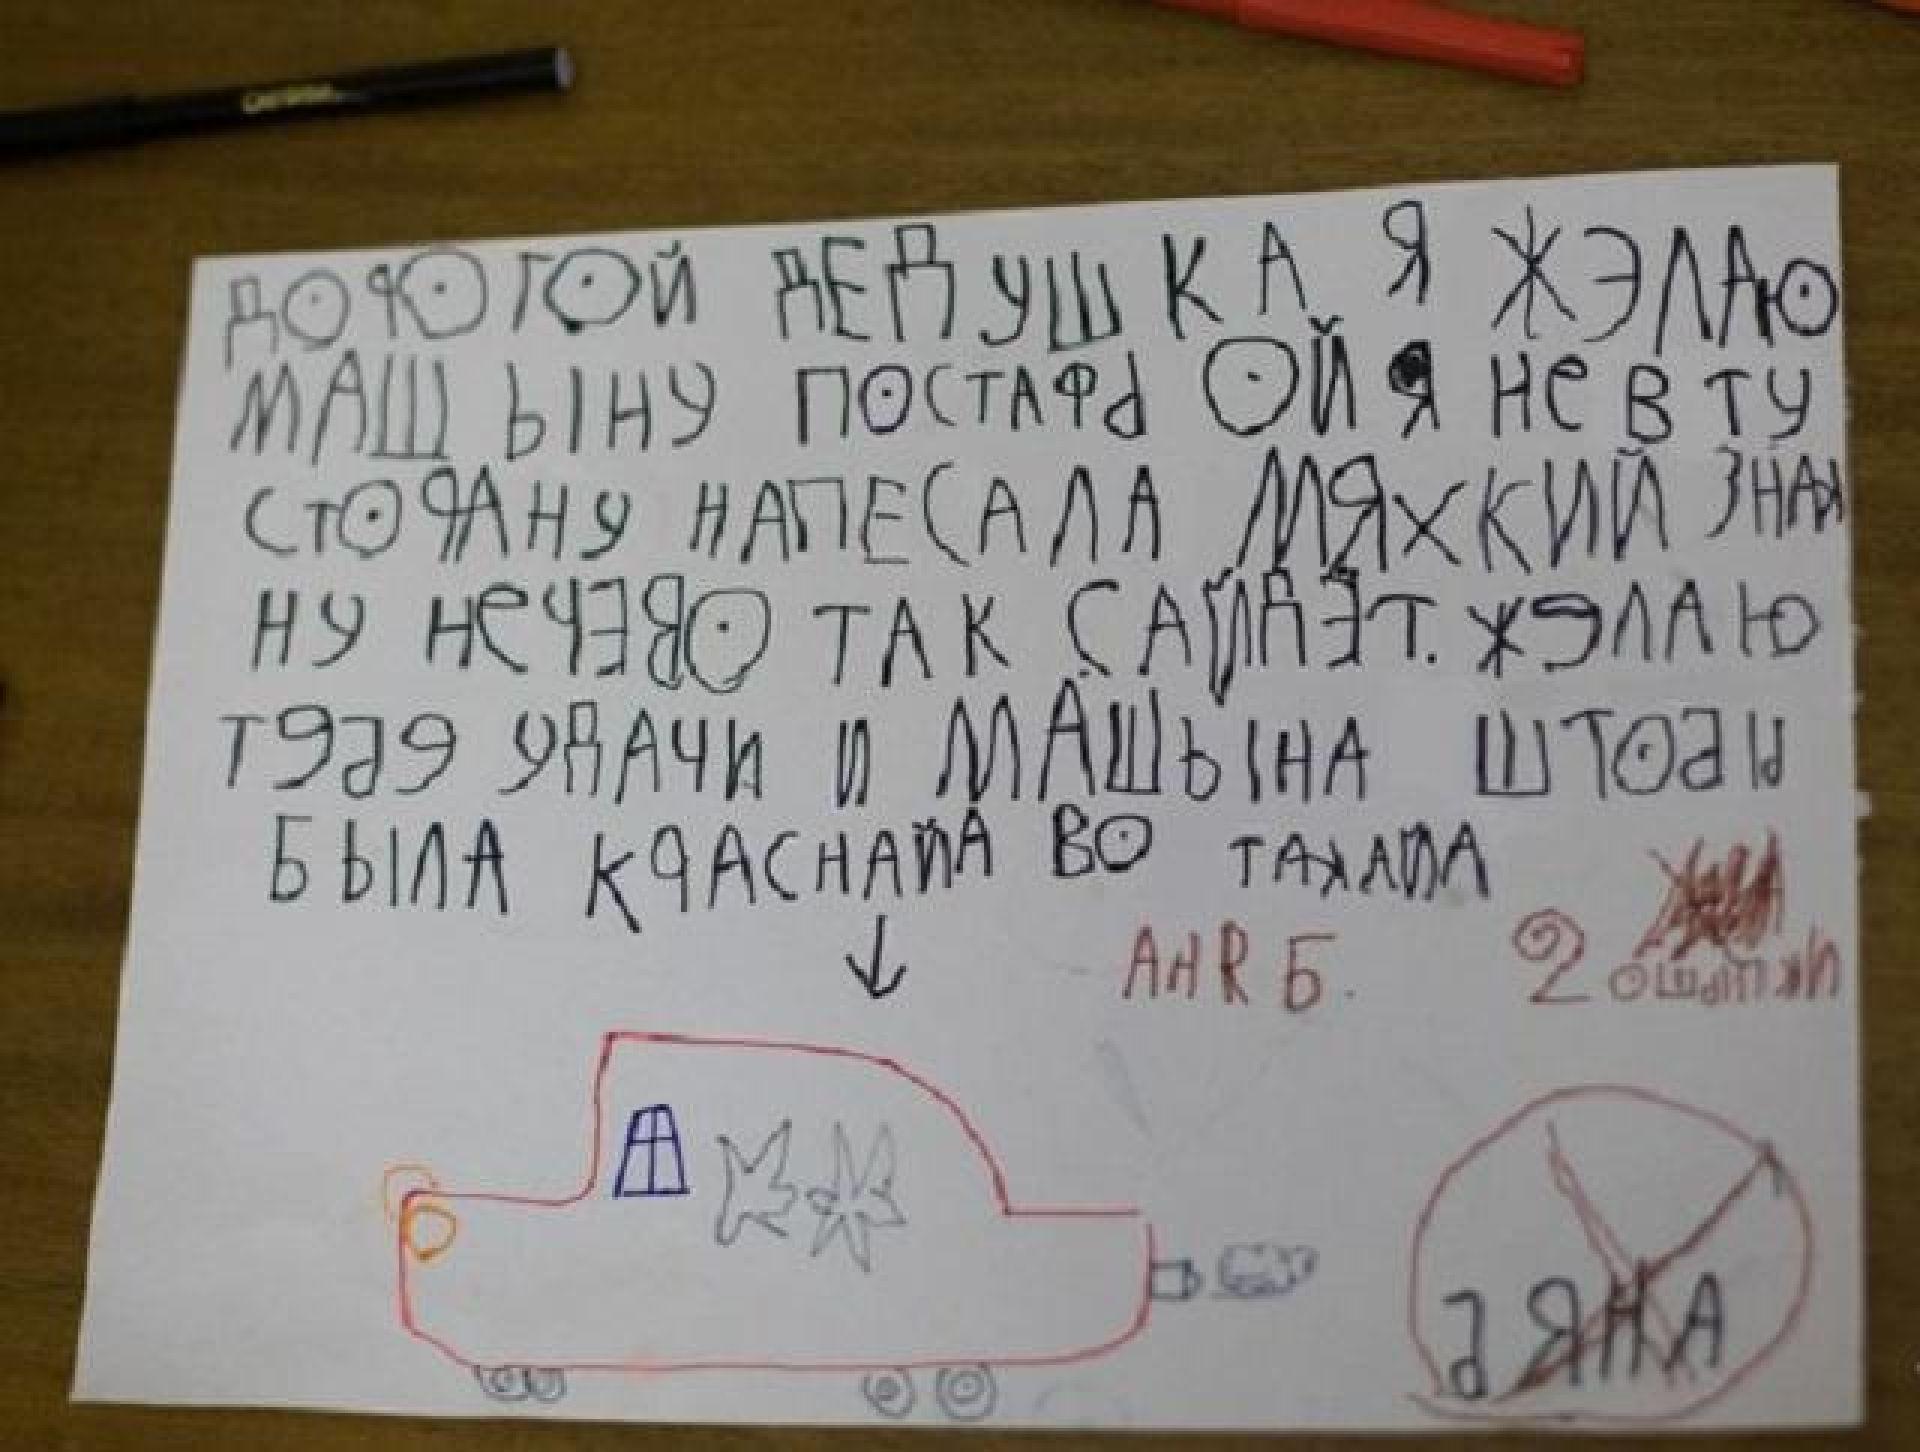 ДОРОГОЙ ДЕДУШКА Я ЖЭЛАЮ
МАШЫНУ ПОСТАФЬ ОЙ Я НЕ В ТУ
СТОРАНУ НАПЕСАЛА МЯХКИЙ ЗНАК
НУ НЕЧЕВО ТАК САЙДЁТ. ЖЭЛАЮ
ТЭБЭ УДАЧИ И МАШЫНА ШТОБЫ
БЫЛА КРАСНАЙА ВО ТАКАЙА
АНЯ Б. 2 ОШЫПКИ
ЬЯНА